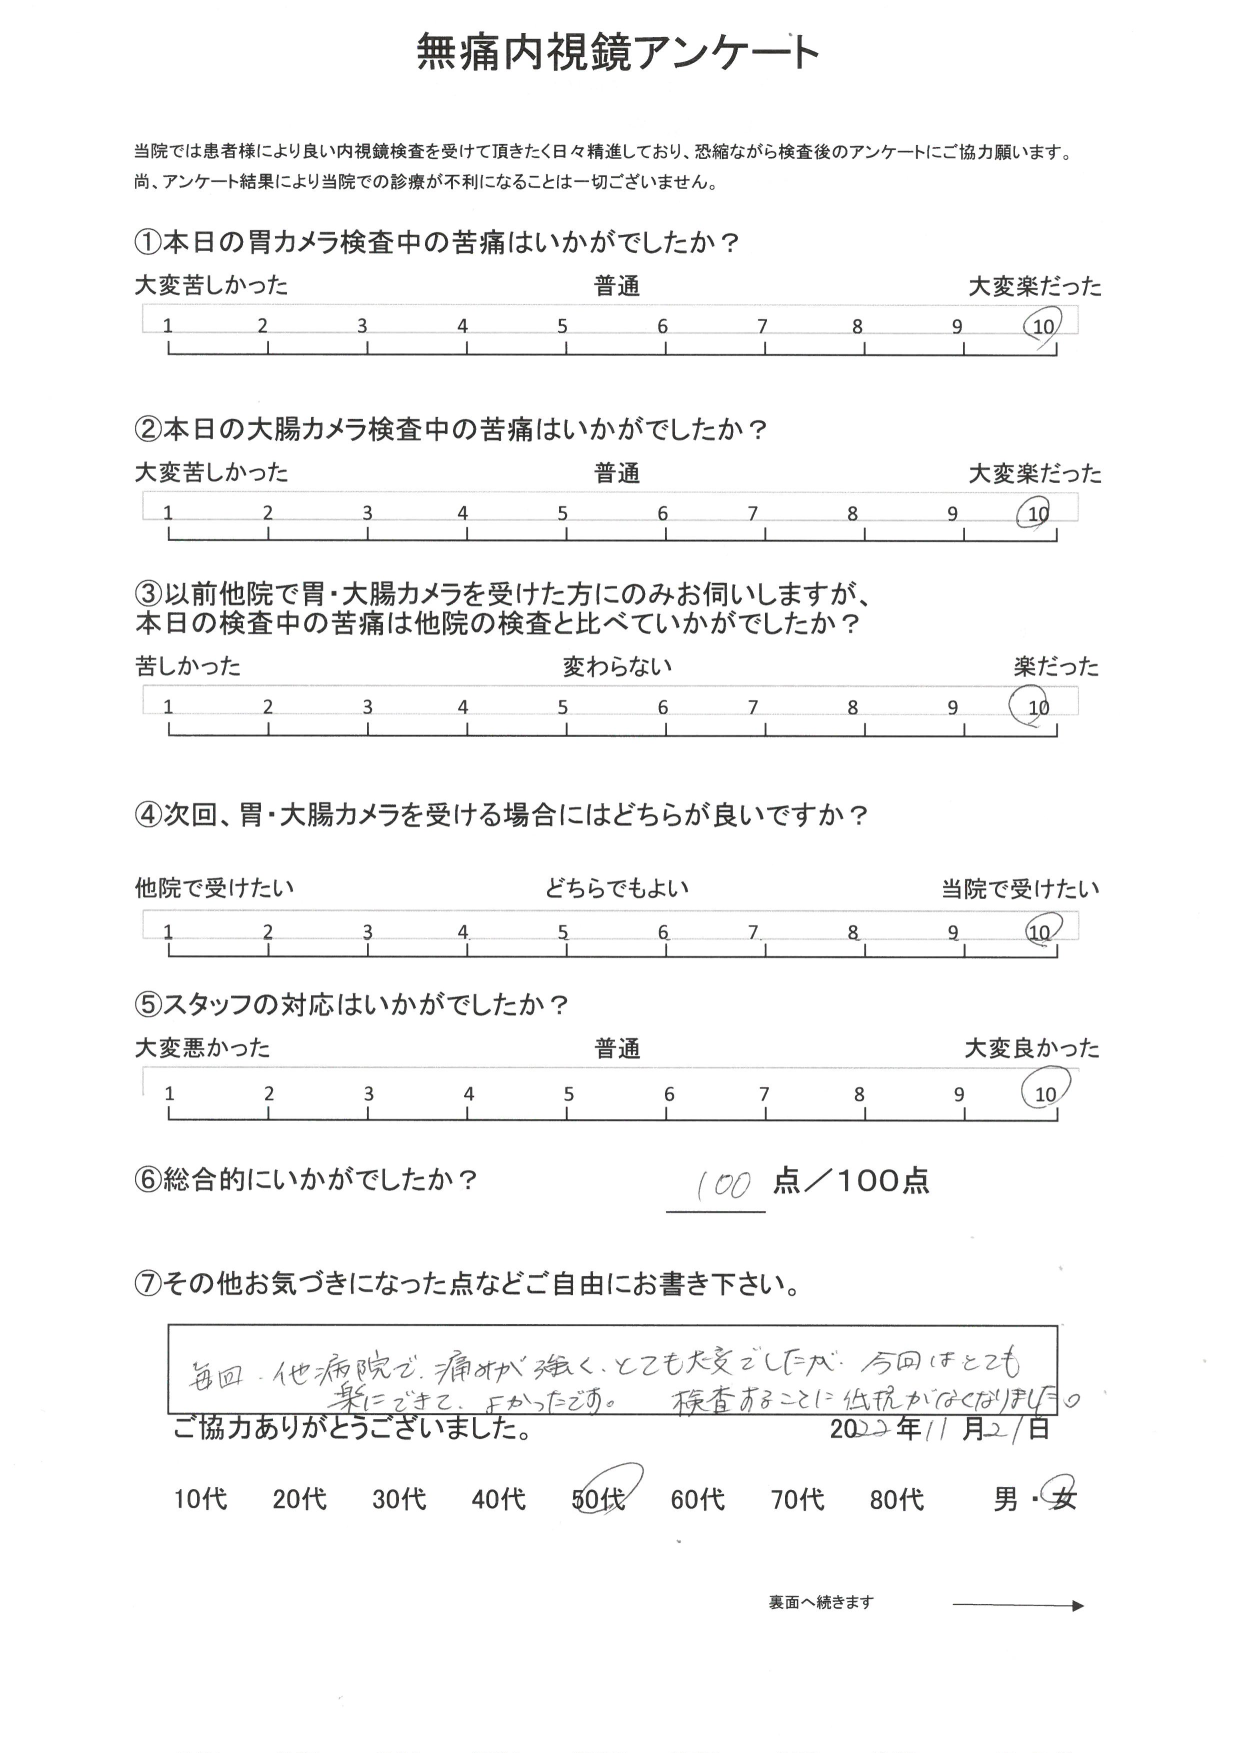 無痛内視鏡アンケート
当院では患者様により良い内視鏡検査を受けて頂きたく日々精進しており、恐縮ながら検査後のアンケートにご協力願います。
尚、アンケート結果により当院での診療が不利になることは一切ございません。
①本日の胃カメラ検査中の苦痛はいかがでしたか？
大変苦しかった 普通 大変楽だった
1 2 3 4 5 6 7 8 9 10
②本日の大腸カメラ検査中の苦痛はいかがでしたか？
大変苦しかった 普通 大変楽だった
1 2 3 4 5 6 7 8 9 10
③以前他院で胃・大腸カメラを受けた方にのみお伺いしますが、
本日の検査中の苦痛は他院の検査と比べていかがでしたか？
苦しかった 変わらない 楽だった
1 2 3 4 5 6 7 8 9 10
④次回、胃・大腸カメラを受ける場合にはどちらが良いですか？
他院で受けたい どちらでもよい 当院で受けたい
1 2 3 4 5 6 7 8 9 10
⑤スタッフの対応はいかがでしたか？
大変悪かった 普通 大変良かった
1 2 3 4 5 6 7 8 9 10
⑥総合的にいかがでしたか？ 100 点／100点
⑦その他お気づきになった点などご自由にお書き下さい。
毎回、他病院で、痛みが強く、とても大変でしたが、今回はとても
楽にできて、よかったです。 検査することに低抗がなくなりました。
ご協力ありがとうございました。 2022年11月21日
10代 20代 30代 40代 50代 60代 70代 80代 男・女
裏面へ続きます